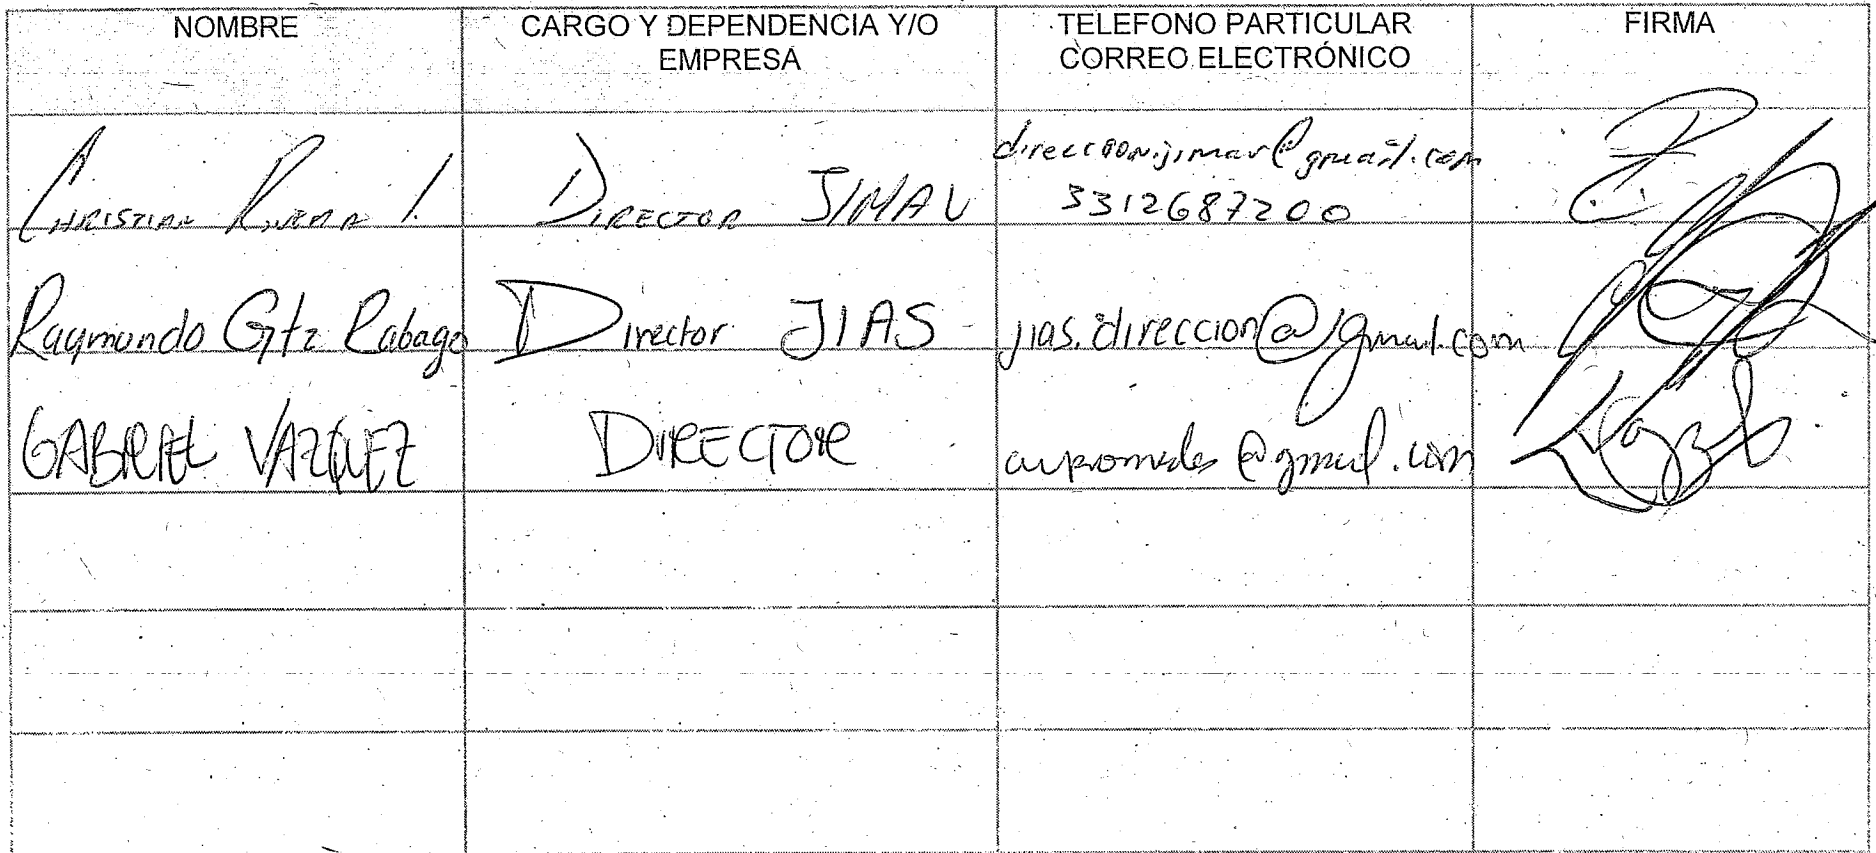 NOMBRE
CARGO Y DEPENDENCIA Y/O
EMPRESA
TELEFONO PARTICULAR
CORREO ELECTRÓNICO
FIRMA
CHRISTIAN RIVERA I.
DIRECTOR JIMAV
direccion.jimav@gmail.com
3312687200
Raymundo Gtz Rabago
Director JIAS
jias.direccion@gmail.com
GABRIEL VAZQUEZ
DIRECTOR
@gmail.com